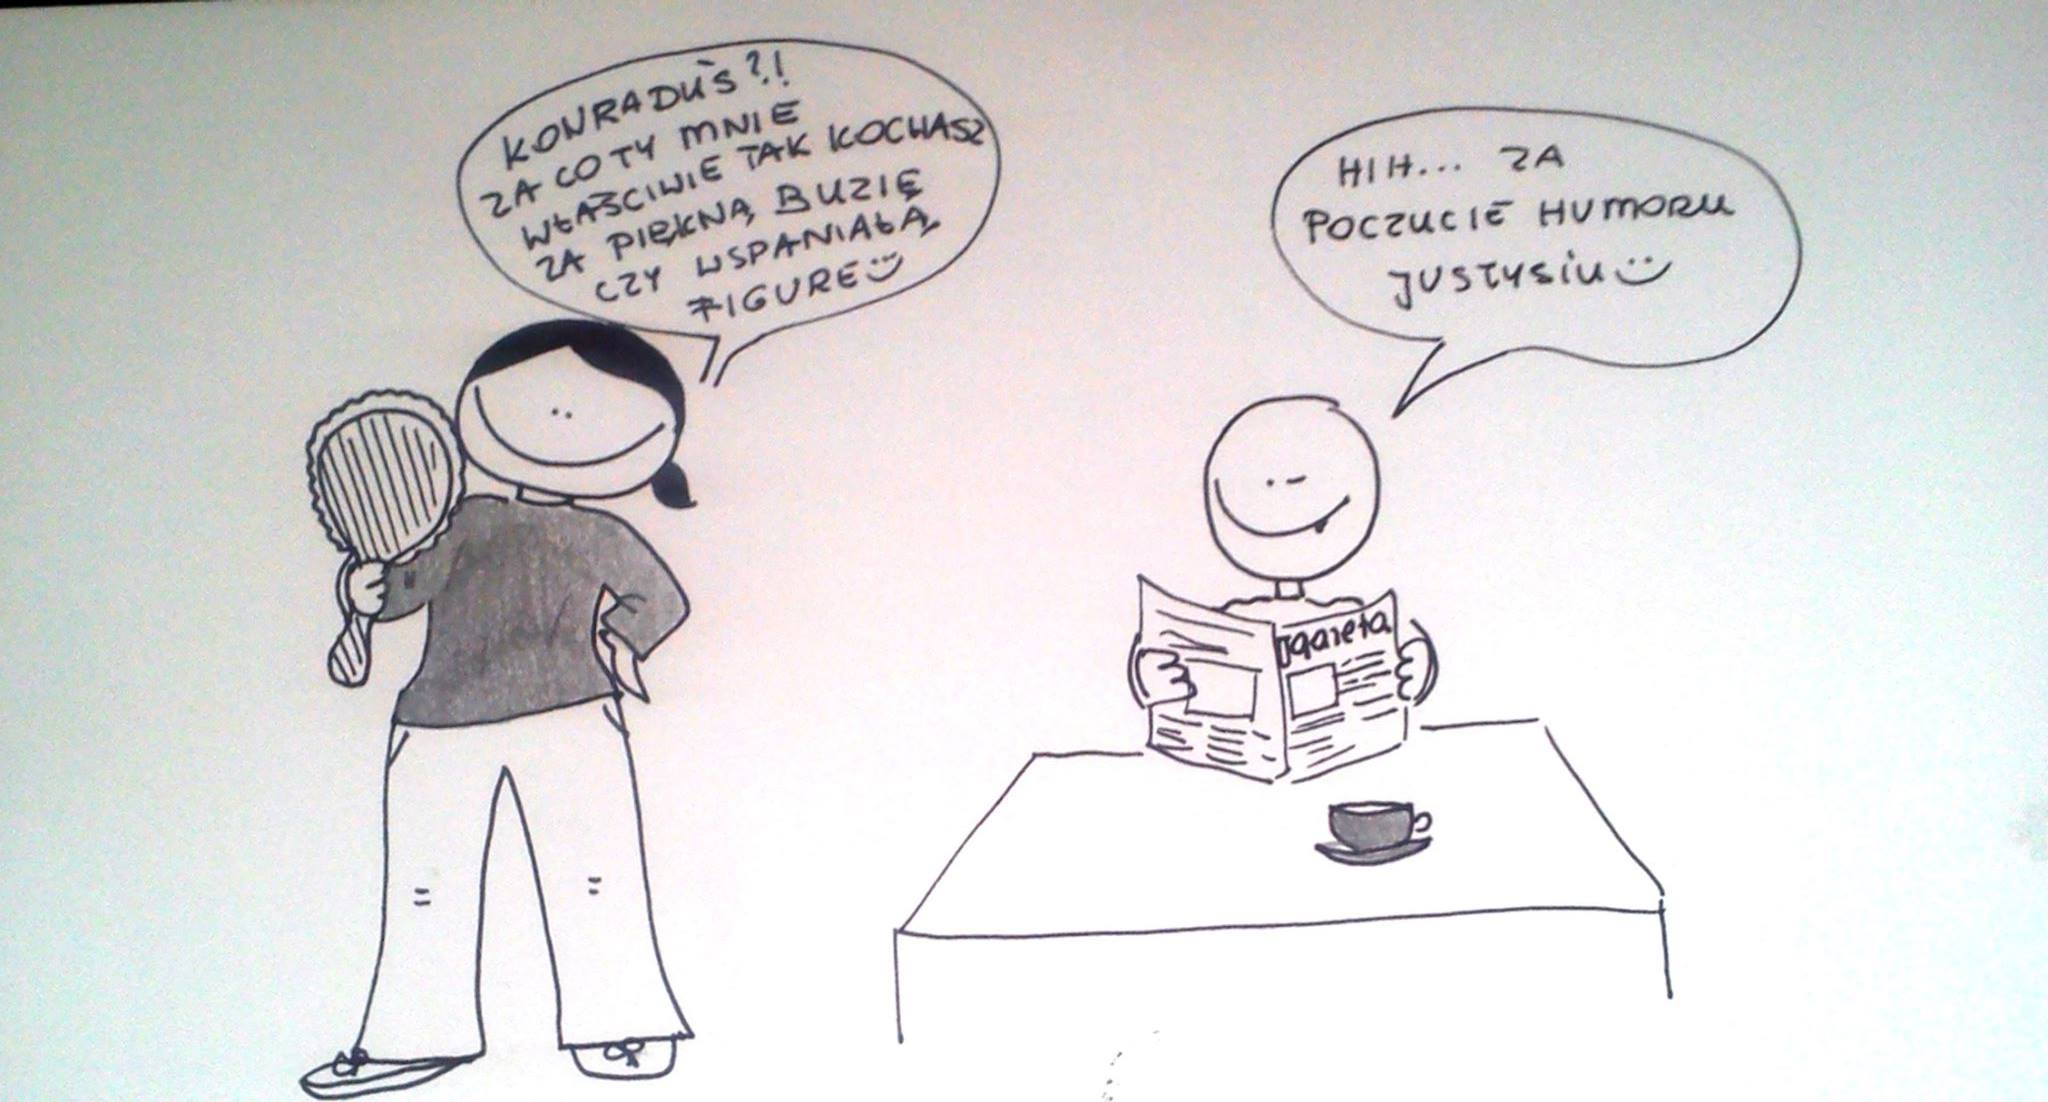 KONRADUŚ?!
ZA CO TY MNIE
WŁAŚCIWIE TAK KOCHASZ
ZA PIĘKNĄ BUZIĘ
CZY WSPANIAŁĄ
FIGURE
HIH... ZA
POCZUCIE HUMORU
JUSTYSIU
gazeta